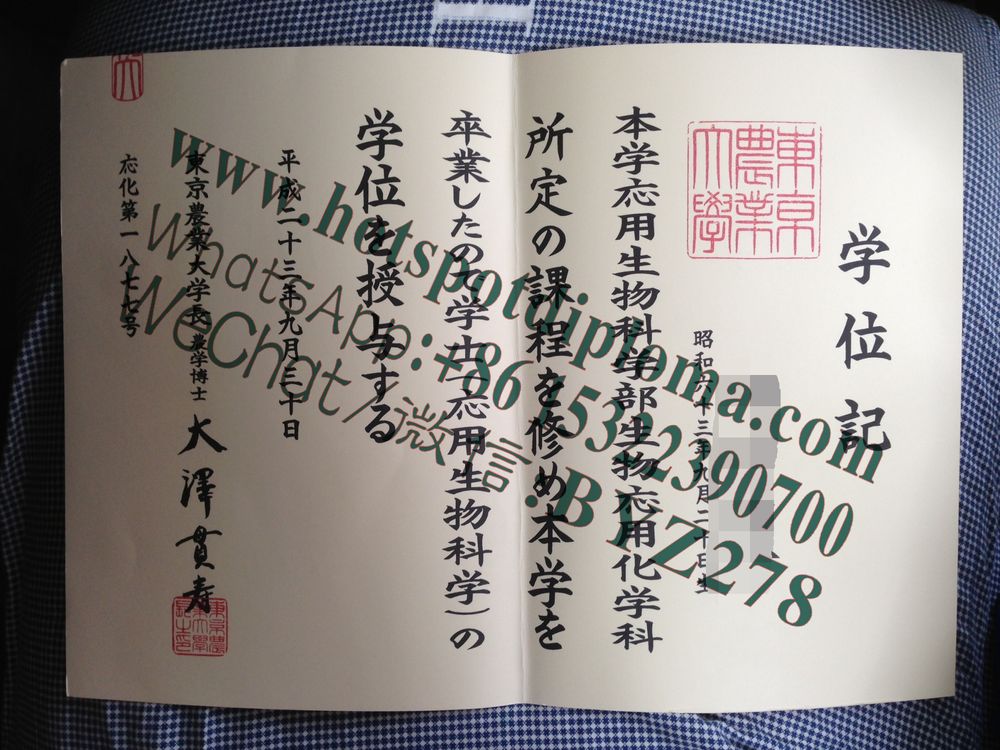 学位記
東京農業大學
昭和六十三年九月二十日生
本学応用生物科学部生物応用化学科
所定の課程を修め本学を
卒業したので学士(応用生物科学)の
学位を授与する
平成二十三年九月三十日
東京農業大学長 農学博士 大澤貫寿
応化第一八七七号
www.hotspotdiploma.com
WhatsApp:+86 15322390700
WeChat/微信:BYZ278